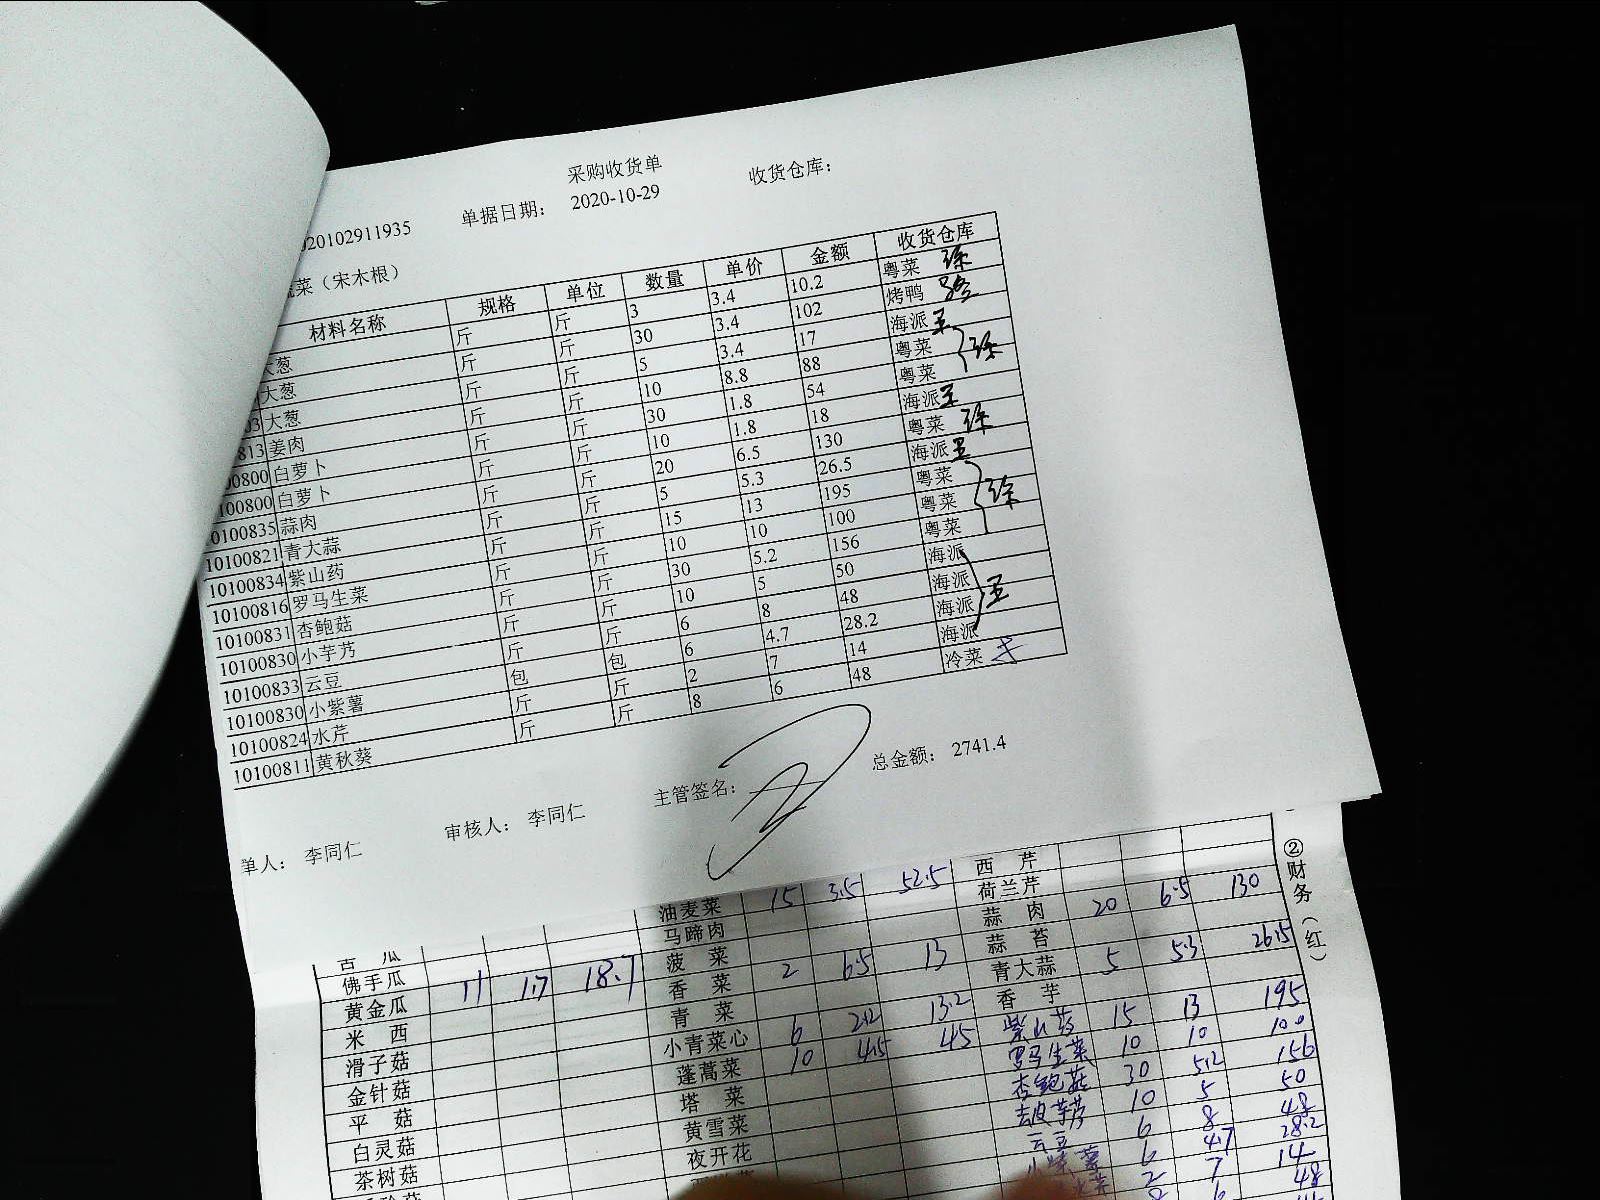 采购收货单
020102911935 单据日期: 2020-10-29 收货仓库:
菜（宋木根）
材料名称 规格 单位 数量 单价 金额 收货仓库
大葱 斤 斤 3 3.4 10.2 粤菜 徐
大葱 斤 斤 30 3.4 102 烤鸭
大葱 斤 斤 5 3.4 17 海派 王
813 姜肉 斤 斤 10 8.8 88 粤菜 徐
00800 白萝卜 斤 斤 30 1.8 54 粤菜
100800 白萝卜 斤 斤 10 1.8 18 海派 王
0100835 蒜肉 斤 斤 20 6.5 130 粤菜 徐
10100821 青大蒜 斤 斤 5 5.3 26.5 海派 王
10100834 紫山药 斤 斤 15 13 195 粤菜
10100816 罗马生菜 斤 斤 10 10 100 粤菜 徐
10100831 杏鲍菇 斤 斤 30 5.2 156 粤菜
10100830 小芋艿 斤 斤 10 5 50 海派
10100833 云豆 斤 斤 6 8 48 海派 王
10100830 小紫薯 包 包 6 4.7 28.2 海派
10100824 水芹 斤 斤 2 7 14 海派
10100811 黄秋葵 斤 斤 8 6 48 冷菜
单人: 李同仁 审核人: 李同仁 主管签名: 总金额: 2741.4
②财务（红）
西芹
油麦菜 15 3.5 52.5 荷兰芹
马蹄肉 蒜肉 20 6.5 130
佛手瓜 11 1.7 18.7 菠菜 2 6.5 13 蒜苔
黄金瓜 香菜 青大蒜 5 5.3 26.5
米西 青菜 6 2.2 13.2 香芋
滑子菇 小青菜心 10 4.5 45 紫山药 15 13 195
金针菇 蓬蒿菜 罗马生菜 10 10 100
平菇 塔菜 杏鲍菇 30 5.2 156
白灵菇 黄雪菜 去皮芋艿 10 5 50
茶树菇 夜开花 云豆 6 8 48
小紫薯 6 4.7 28.2
2 7 14
8 6 48